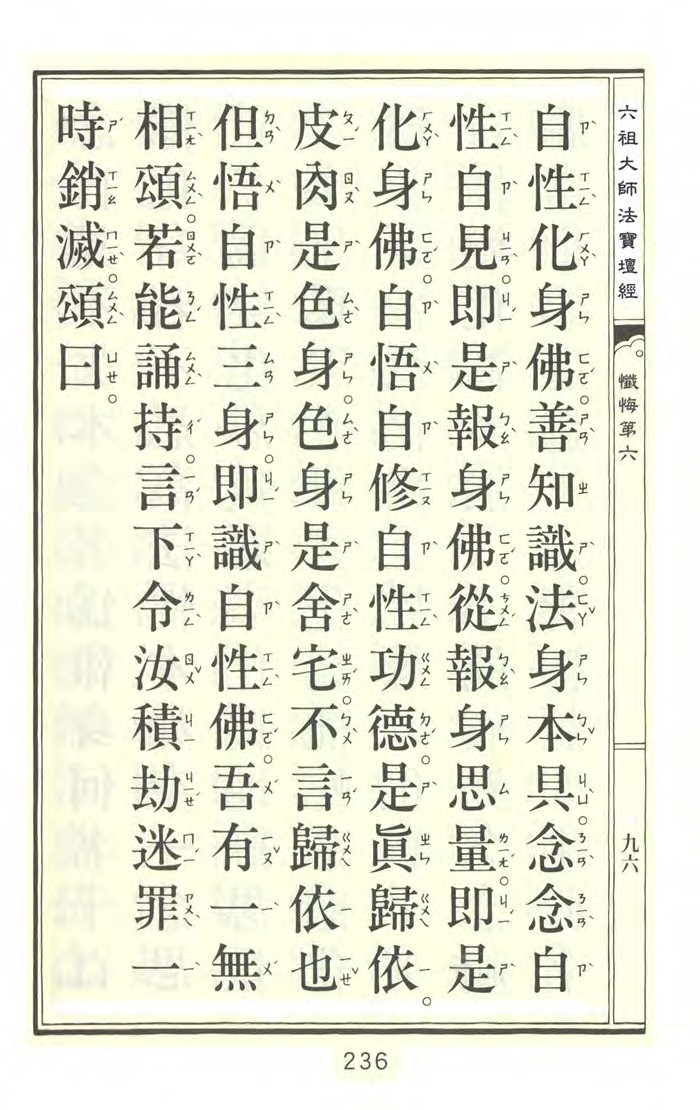 六祖大師法寶壇經 懺悔第六 九六
自性化身佛。善知識。法身本具。念念自
性自見。即是報身佛。從報身思量。即是
化身佛。自悟自修自性功德。是眞歸依。
皮肉是色身。色身是舍宅。不言歸依也
但悟自性三身。即識自性佛。吾有一無
相頌。若能誦持。言下令汝積劫迷罪一
時銷滅。頌曰。
236